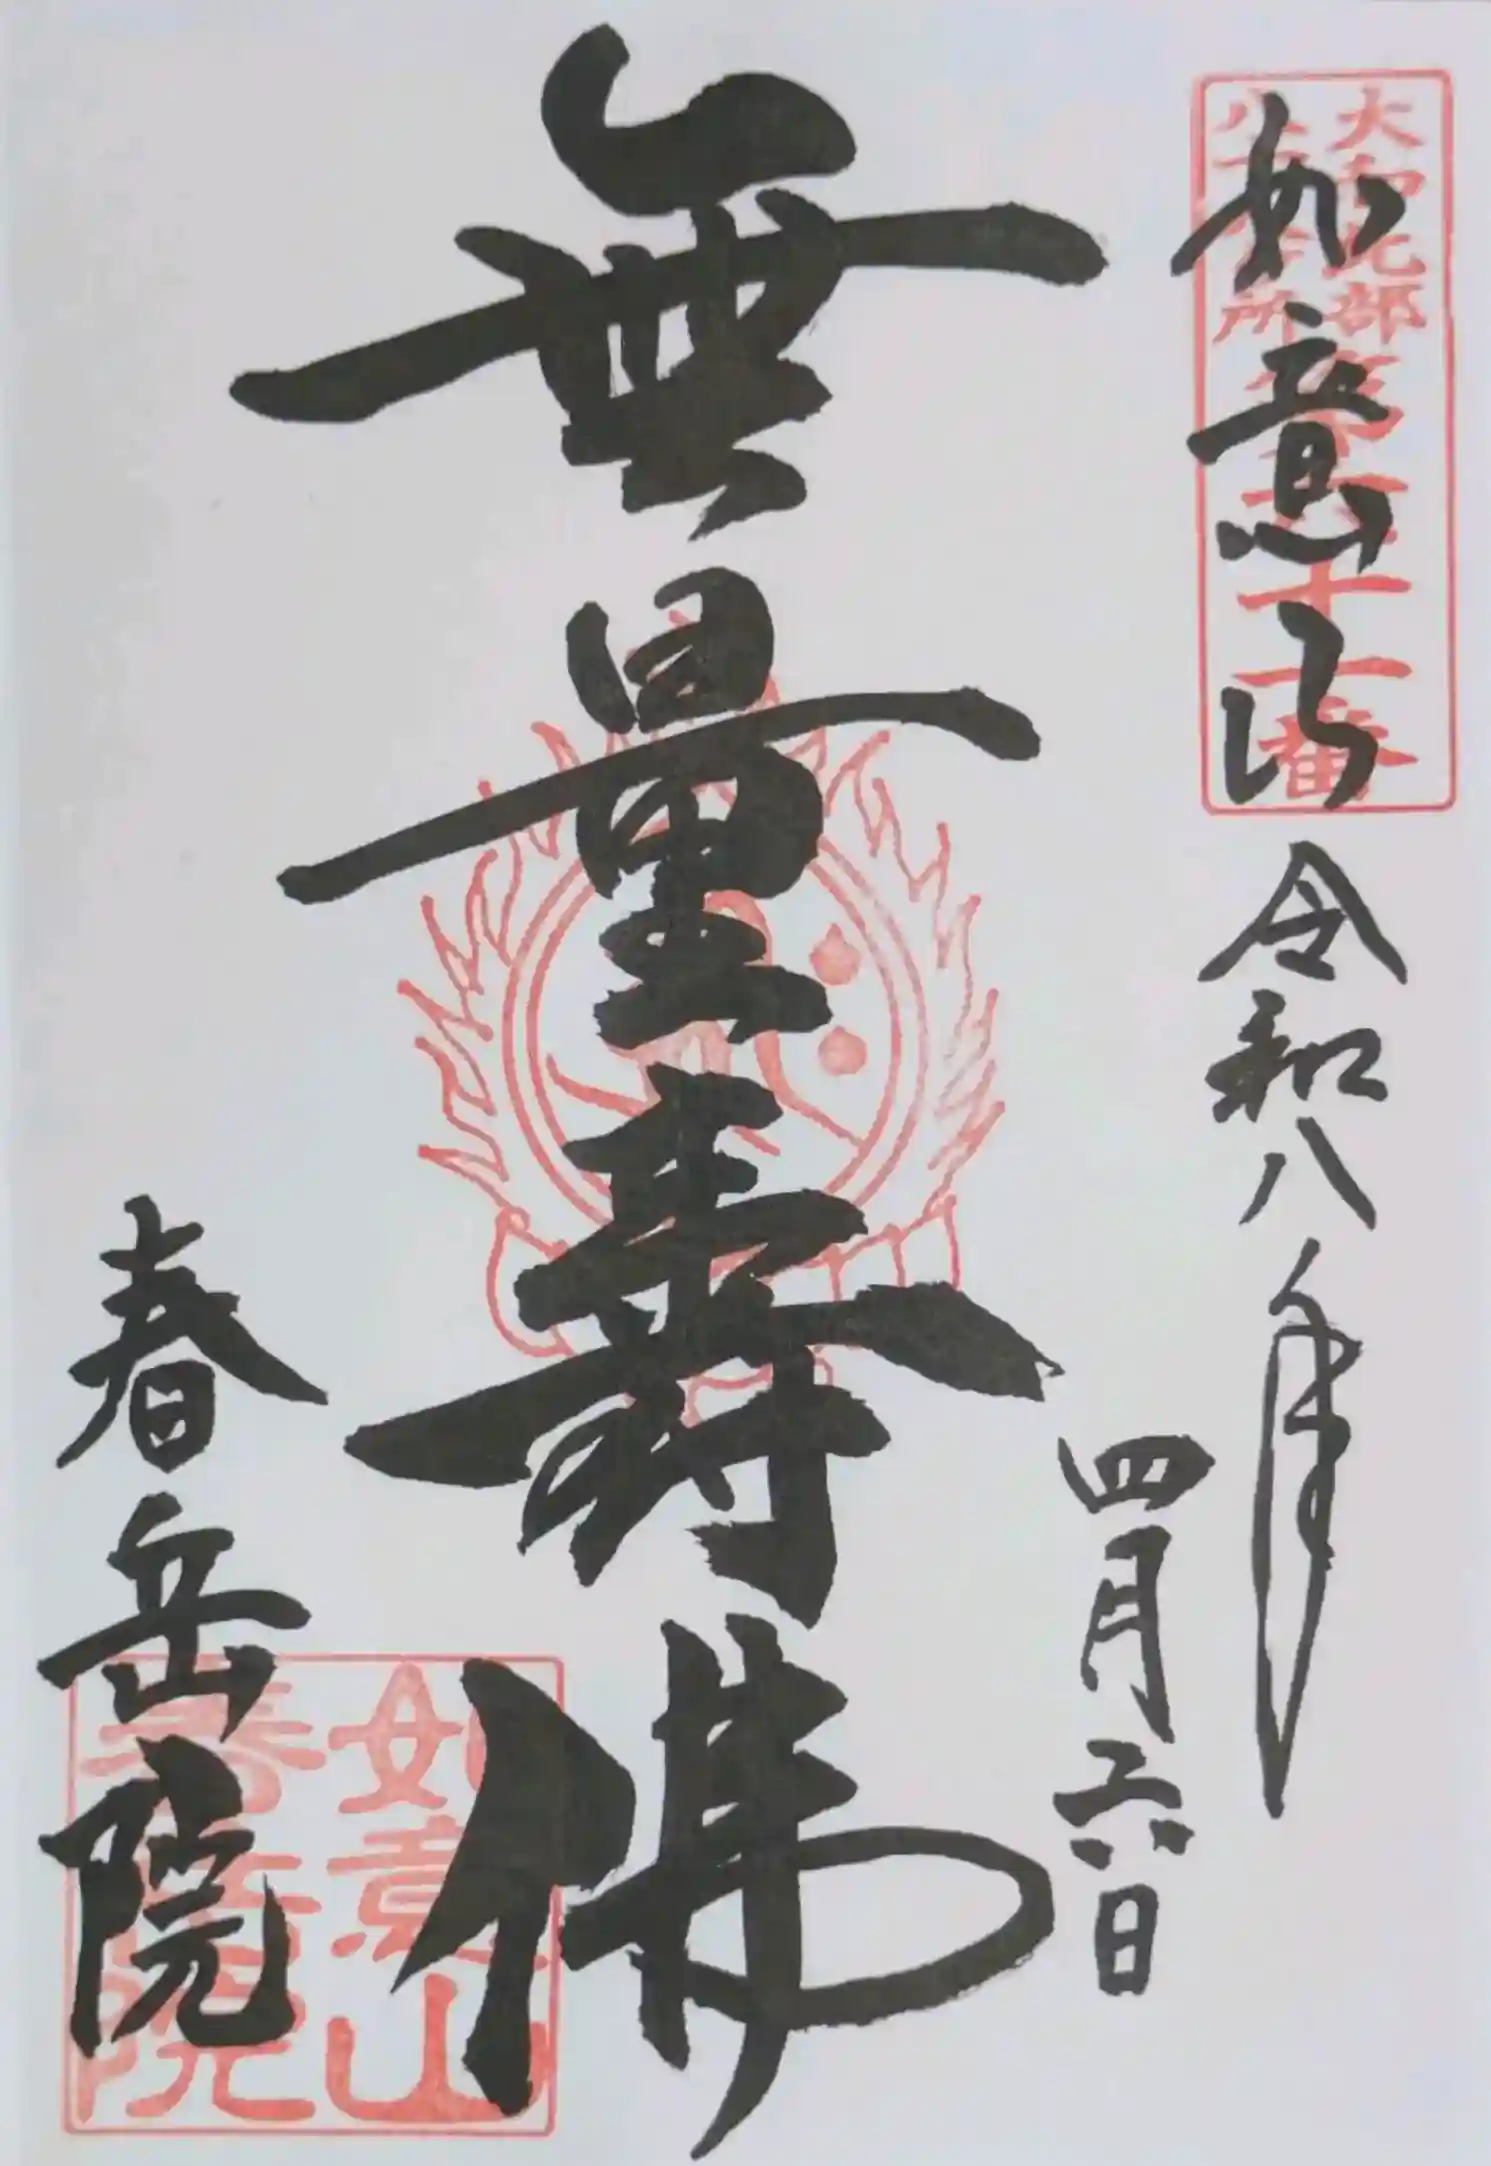 如意山
令和八年
四月六日
無量壽佛
春岳院
大和北部
八十八所
第五十二番
如意山
春岳院